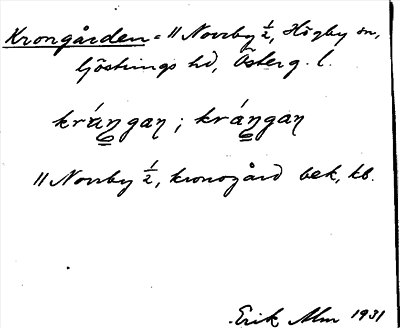 Krongården = "Norrby ½, Högby sn,
Göstrings hd, Österg. l.
krángaꞃ ; krángaꞃ
"Norrby ½, kronogård bek, kb.
Erik Alm 1931